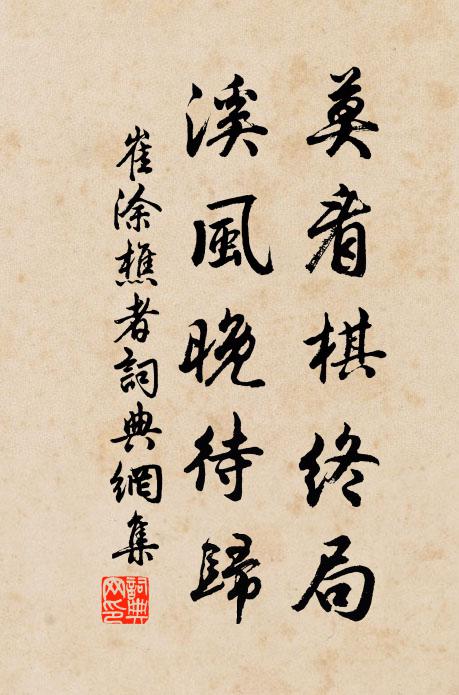 莫看棋終局
溪風晚待歸
崔涂樵者詞典網集
詞典網印